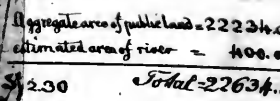 Aggregate area of public land = 22234.
estimated area of river = 400.
$2.30 Total = 22634.